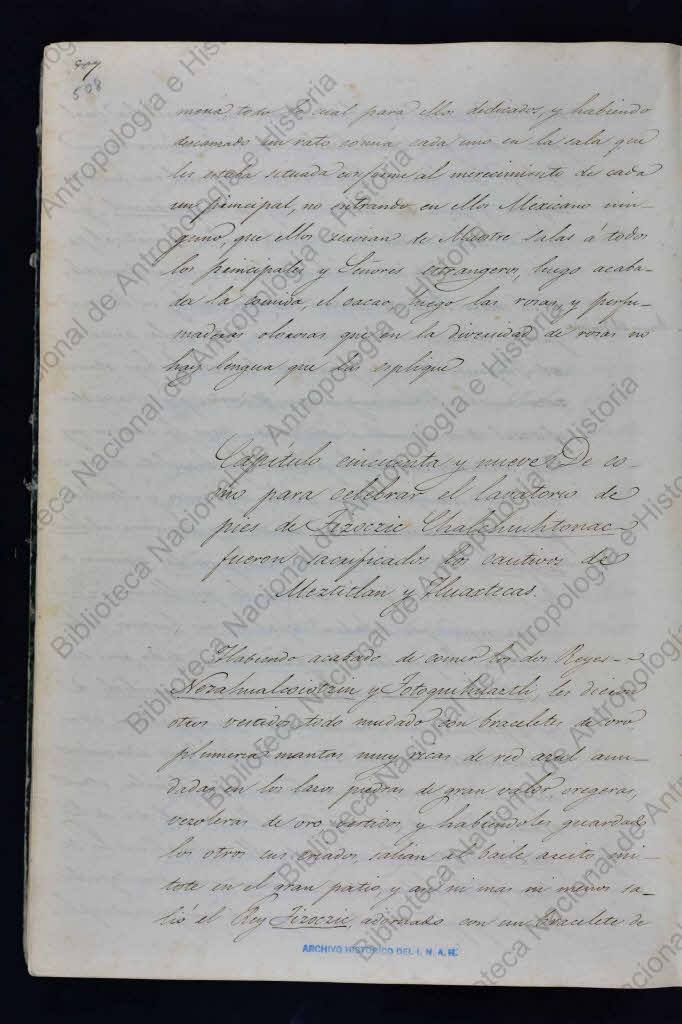 507
508
mería, todo lo cual, para ellos dedicados, y habiendo
descansado un rato comía cada uno en la sala que
les estaba situada conforme al merecimiento de cada
un principal, no entrando en ellos Mexicano nin-
guno, que ellos servian de Maestre salas á todos
los principales y Señores estrangeros, luego acaba-
da la comida, el cacao, luego las rosas, y perfu-
maderas olorosas que en la diversidad de rosas no
hay lengua que las esplique.
Capítulo cincuenta y nueve. De co-
mo para celebrar el lavatorio de
pies de Tizoczic Chalchiuhtonac
fueron sacrificados los cautivos de
Meztitlan y Huaxtecas.
Habiendo acabado de comer los dos Reyes
Nezahualcoiotzin y Totoquihuaztli, les dieron
otros vestidos todo mudado con braceletes de oro
plumeria mantas muy ricas de red azul anu-
dadas en los lazos piedras de gran valor, oregeras,
vezoleras de oro vertidos, y habiendoles guardado
los otros sus criados, salían al baile, aceito mi-
tote en el gran patio, y así ni mas ni menos sa-
lió el Rey Tizoczic, adornado con un bracelete de
ARCHIVO HISTÓRICO DEL I. N. A. H.
Biblioteca Nacional de Antropología e Historia